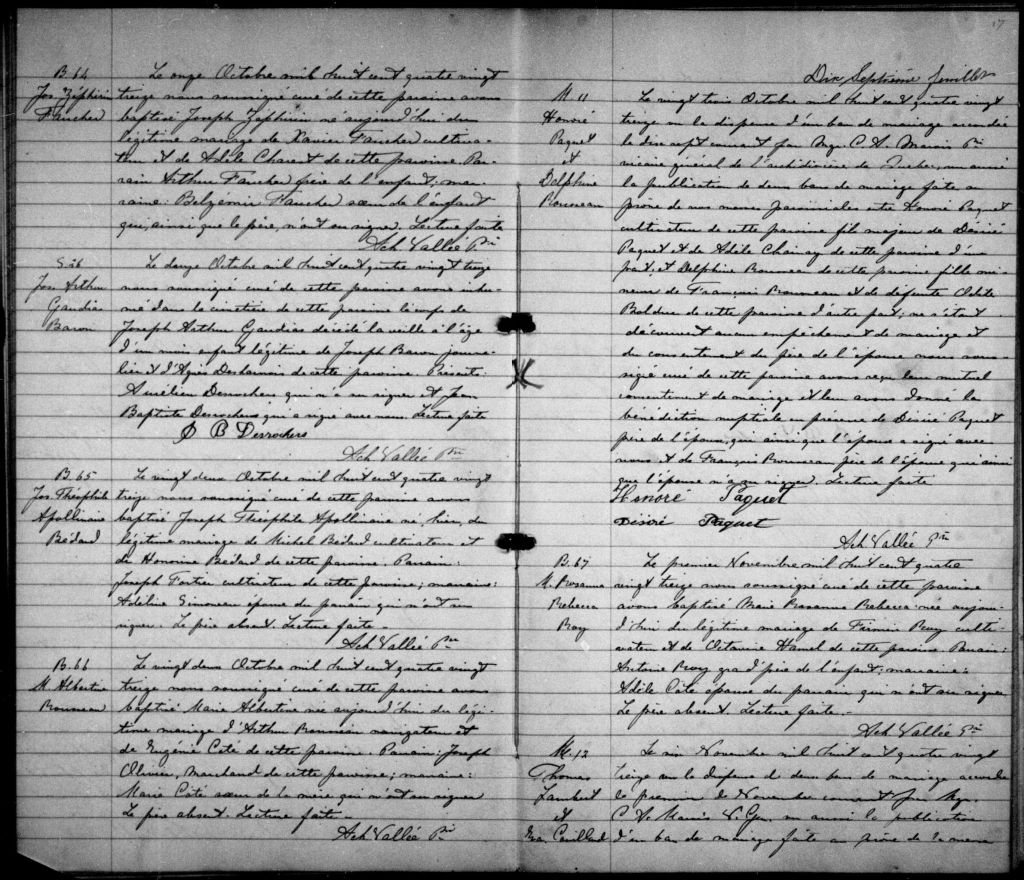 B. 64
Jos. Zéphirin
Faucher
Le onze Octobre mil huit cent quatre vingt
treize nous soussigné curé de cette paroisse avons
baptisé Joseph Zéphirin né aujourd'hui du
légitime mariage de Xavier Faucher cultiva-
teur et de Adèle Charest de cette paroisse Par-
rain Arthur Faucher frère de l'enfant; mar-
raine: Belzémire Faucher sœur de l'enfant
qui, ainsi que le père, n'ont su signer. Lecture faite
Ach Vallée Ptre
S. 26
Jos. Arthur
Gaudias
Baron
Le douze Octobre mil huit cent quatre vingt treize
nous soussigné curé de cette paroisse avons inhu-
mé dans le cimetière de cette paroisse le corps de
Joseph Arthur Gaudias décédé la veille à l'âge
d'un mois enfant légitime de Joseph Baron journa-
lier et d'Agnès Desharnais de cette paroisse. Présents:
Aurélien Desrochers qui n'a su signer et Jean
Baptiste Desrochers qui a signé avec nous. Lecture faite
J B Desrochers
Ach Vallée Ptre
B. 65
Jos. Théophile
Apollinaire
Bédard
Le vingt deux Octobre mil huit cent quatre vingt
treize nous soussigné curé de cette paroisse avons
baptisé Joseph Théophile Apollinaire né hier, du
légitime mariage de Michel Bédard cultivateur et
de Honorine Bédard de cette paroisse. Parrain:
Joseph Fortier cultivateur de cette paroisse; marraine:
Adéline Simoneau épouse du parrain qui n'ont su
signer. Le père absent. Lecture faite.
Ach Vallée Ptre
B. 66
M. Albertine
Rousseau
Le vingt deux Octobre mil huit cent quatre vingt
treize nous soussigné curé de cette paroisse avons
baptisé Marie Albertine née aujourd'hui du légi-
time mariage d'Arthur Rousseau navigateur et
de Eugénie Coté de cette paroisse Parrain: Joseph
Olivier, marchand de cette paroisse; marraine:
Marie Coté sœur de la mère qui n'ont su signer
Le père absent. Lecture faite.
Ach Vallée Ptre
17
Dix Septième feuillet
M 11
Honoré
Paquet
et
Delphine
Rousseau
Le vingt trois Octobre mil huit cent quatre vingt
treize vu la dispense d'un ban de mariage accordée
le dix sept courant par Mgr. C. A. Marois Ptre
vicaire général de l'archidiocèse de Québec, vu aussi
la publication de deux bans de mariage faite au
prône de nos messes paroissiales entre Honoré Paquet
cultivateur de cette paroisse fils majeur de Désiré
Paquet et de Adèle de cette paroisse d'une
part; et Delphine Rousseau de cette paroisse fille mi-
neure de François Rousseau et de défunte Odile
Bolduc de cette paroisse d'autre part; ne s'étant
découvert aucun empêchement de mariage et
du consentement du père de l'épouse nous sous-
signé curé de cette paroisse avons reçu leur mutuel
consentement de mariage et leur avons donné la
bénédiction nuptiale en présence de Désiré Paquet
père de l'époux, qui ainsi que l'époux a signé avec
nous et de François Rousseau père de l'épouse qui ainsi
que l'épouse n'a su signer. Lecture faite
Honoré Paquet
Désiré Paquet
Ach Vallée Ptre
B. 67
M. Rosanna
Rebecca
Roy
Le premier Novembre mil huit cent quatre
vingt treize nous soussigné curé de cette paroisse
avons baptisé Marie Rosanna Rebecca née aujour-
d'hui du légitime mariage de Firmin Roy culti-
vateur et de Octavie Hamel de cette paroisse Parrain:
Antoine Roy grand père de l'enfant; marraine:
Adèle Coté épouse du parrain qui n'ont su signer
Le père absent. Lecture faite.
Ach Vallée Ptre
M. 12
Thomas
Lambert
et
Couillard
Le six Novembre mil huit cent quatre vingt
treize vu la dispense de deux bans de mariage accordée
le premier de Novembre courant par Mgr.
C. A. Marois V. G. vu aussi la publication
d'un ban de mariage faite au prône de la messe